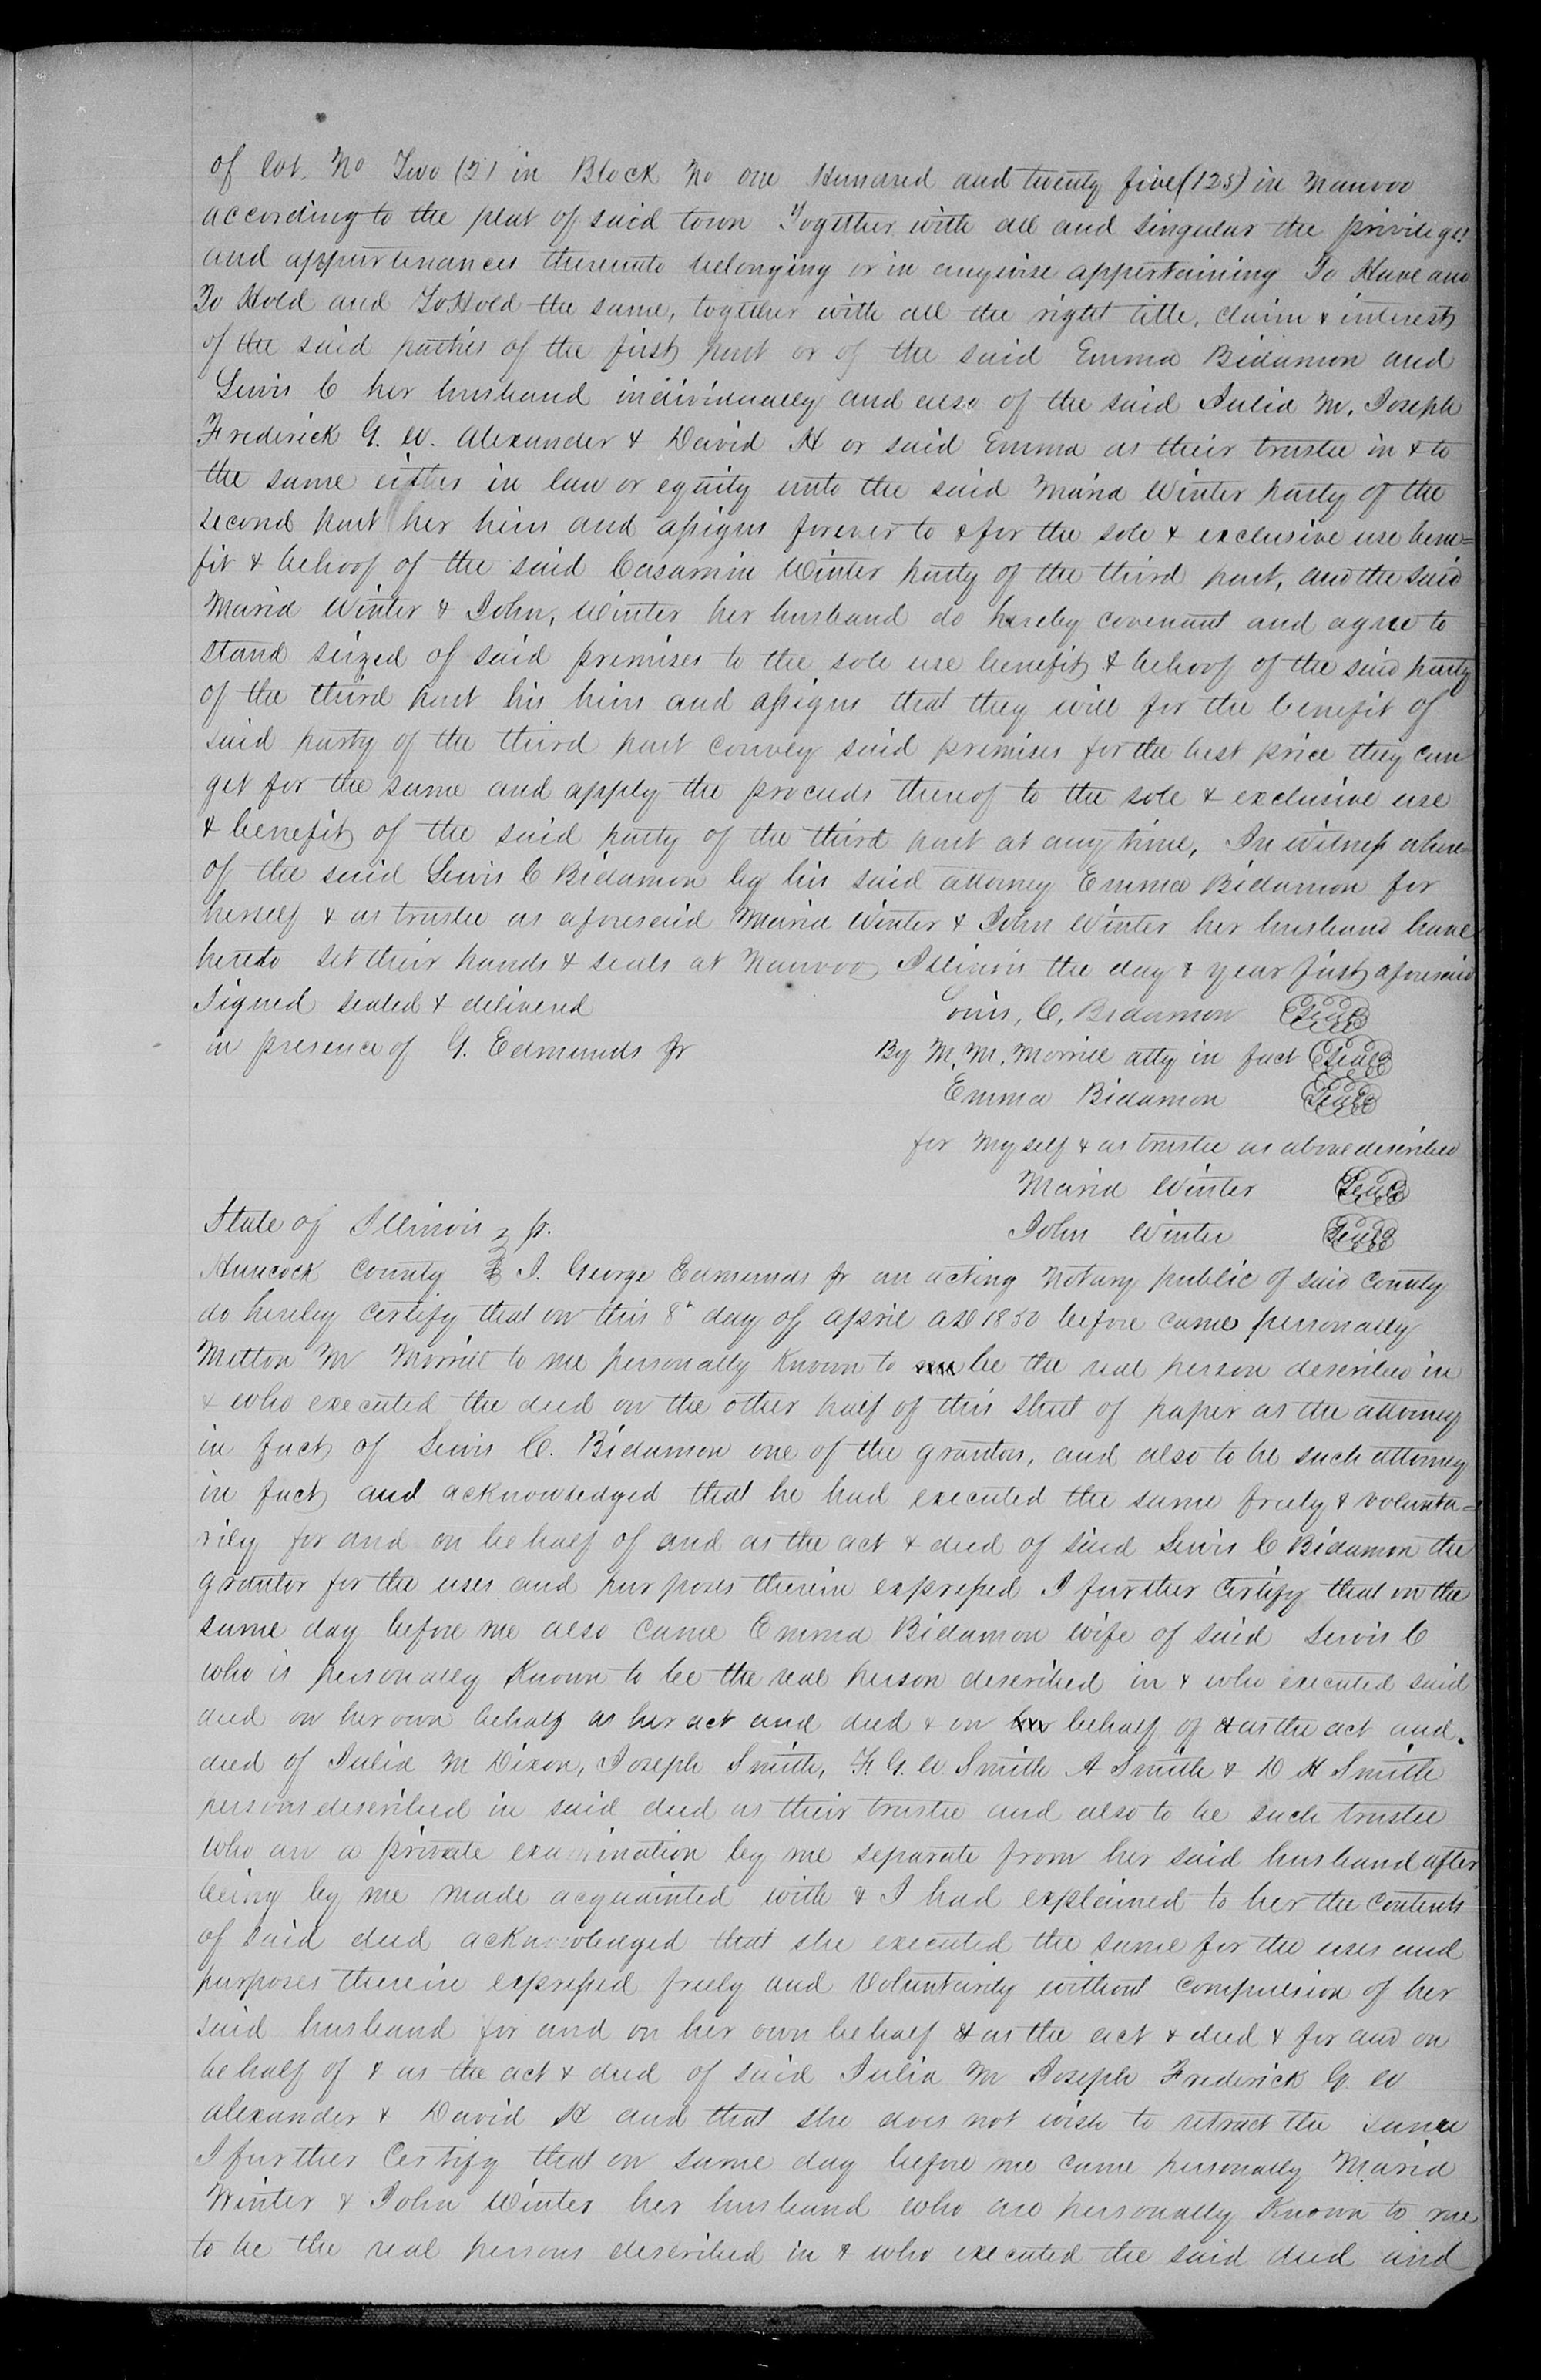 of lot No Two (2) in Block No one Hundred and twenty five (125) in Nauvoo
according to the plat of said town Together with all and singular the privileges
and appurtenances thereunto belonging or in anywise appertaining To Have and
To Hold and To Hold the same, together with all the right title, claim & interest
of the said parties of the first part or of the said Emma Bidamon and
Lewis C her husband individually and also of the said Julia M, Joseph
Frederick G. W. Alexander & David H or said Emma as their trustee in & to
the same either in law or equity unto the said Maria Winter party of the
second part her heirs and assigns forever to & for the sole & exclusive use bene=
fit & behoof of the said Casamin Winter party of the third part, and the said
Maria Winter & John, Winter her husband do hereby covenant and agree to
stand seized of said premises to the sole use benefit & behoof of the said party
of the third part his heirs and assigns that they will for the benefit of
said party of the third part convey said premises for the best price they can
get for the same and apply the proceeds thereof to the sole & exclusive use
& benefit of the said party of the third part at any time, In witness where=
of the said Lewis C Bidamon by his said attorney Emma Bidamon for
herself & as trustee as aforesaid Maria Winter & John Winter her husband have
hereto set their hands & seals at Nauvoo Illinois the day & year first aforesaid
Signed sealed & delivered Louis, C, Bidamon Seal
in presence of G. Edmunds Jr By M. M. Morrill atty in fact Seal
Emma Bidamon Seal
for myself & as trustee as above described
Maria Winter Seal
State of Illinois } ss. John Winter Seal
Hancock County } I. George Edmunds Jr an acting Notary public of said County
do hereby certify that on this 8th day of April AD 1850 before came personally
Metton M Morrill to me personally known to be the real person described in
& who executed the deed on the other half of this sheet of paper as the attorney
in fact of Lewis C. Bidamon one of the grantors, and also to be such attorney
in fact and acknowledged that he had executed the same freely & volunta=
rily for and on behalf of and as the act & deed of said Lewis C Bidamon the
grantor for the uses and purposes therein expressed I further Certify that on the
same day before me also came Emma Bidamon wife of said Lewis C
who is personally known to be the real person described in & who executed said
deed on her own behalf as her act and deed & on behalf of & as the act and
deed of Julia M Dixon, Joseph Smith, F. G. W. Smith A Smith & D H Smith
persons described in said deed as their trustee and also to be such trustee
who on a private examination by me separate from her said husband after
being by me made acquainted with & I had explained to her the contents
of said deed acknowledged that she executed the same for the uses and
purposes therein expressed freely and Voluntarily without compulsion of her
said husband for and on her own behalf & as the act & deed & for and on
behalf of & as the act & deed of said Julia M Joseph Frederick G. W
Alexander & David H and that she does not wish to retract the same
I further Certify that on same day before me came personally Maria
Winter & John Winter her husband who are personally known to me
to be the real persons described in & who executed the said deed and